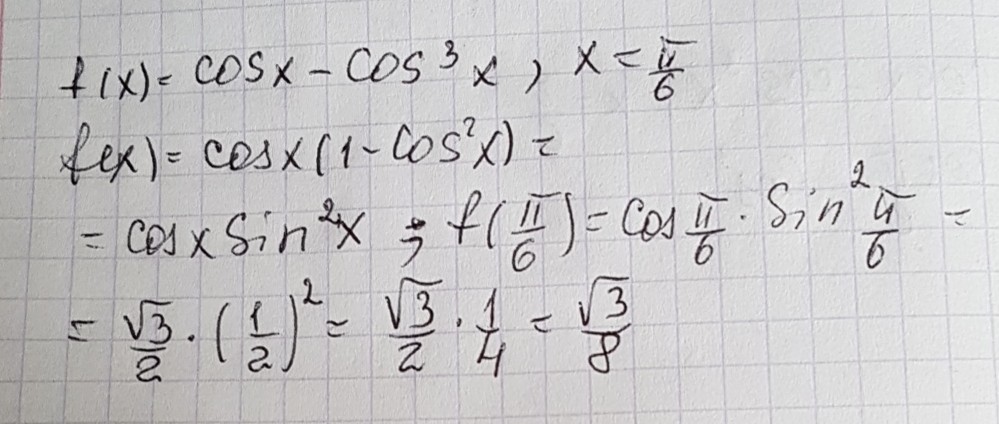 f(x) = cosx - cos³x, x = π/6
f(x) = cosx(1 - cos²x) =
= cosx sin²x ; f(π/6) = cos π/6 · sin² π/6 =
= √3/2 · (1/2)² = √3/2 · 1/4 = √3/8